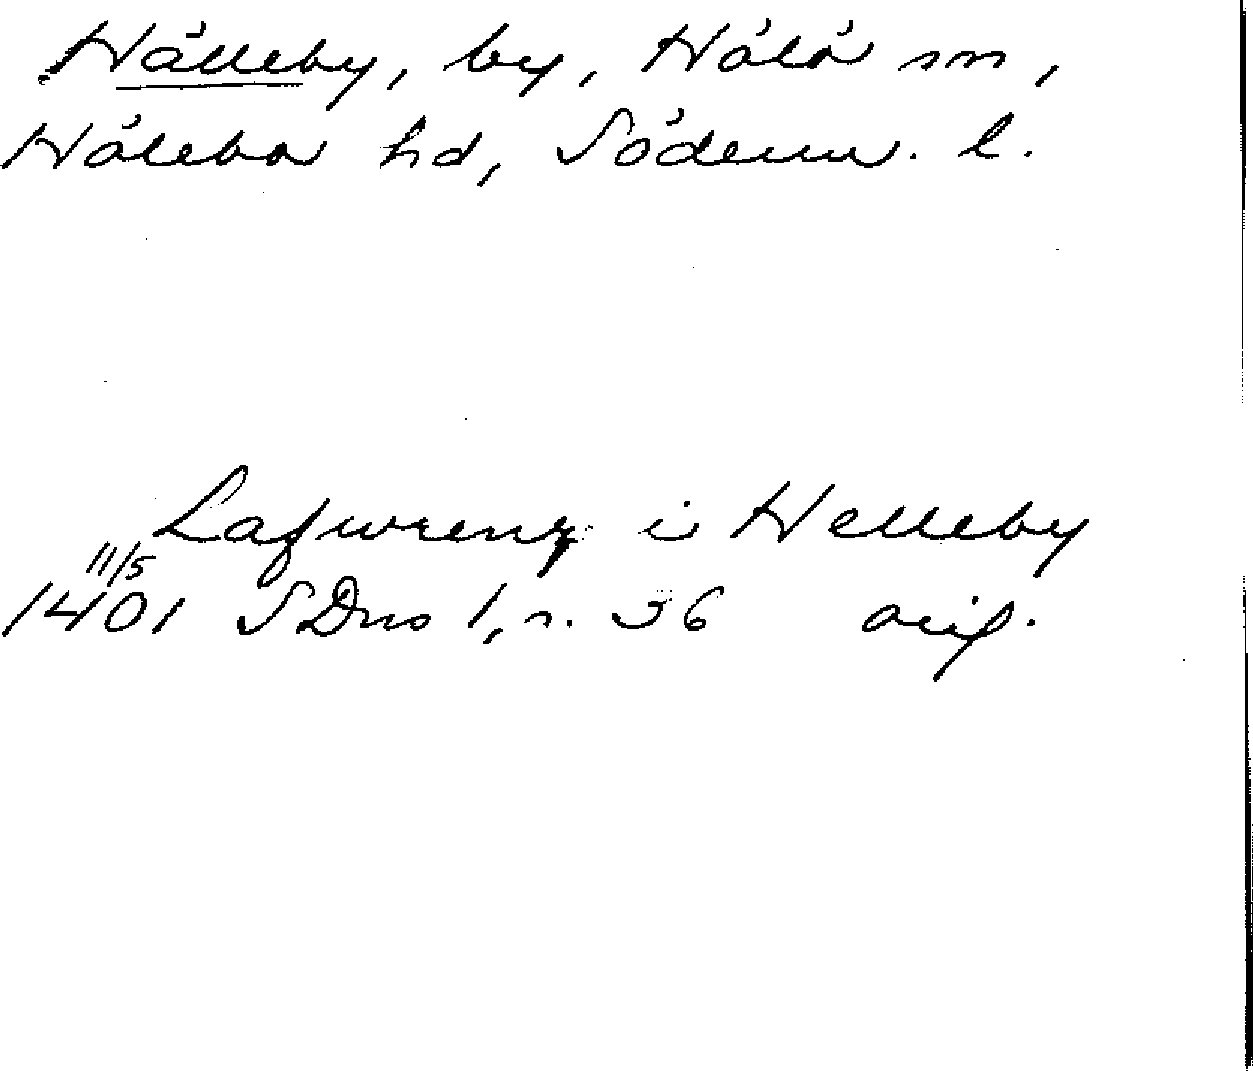 Hälleby, by, Hölö sn,
Hölebo hd, Söderm. l.
Lafwrenz i Helleby
11/5
1401 SDns 1, s. 36 orig.